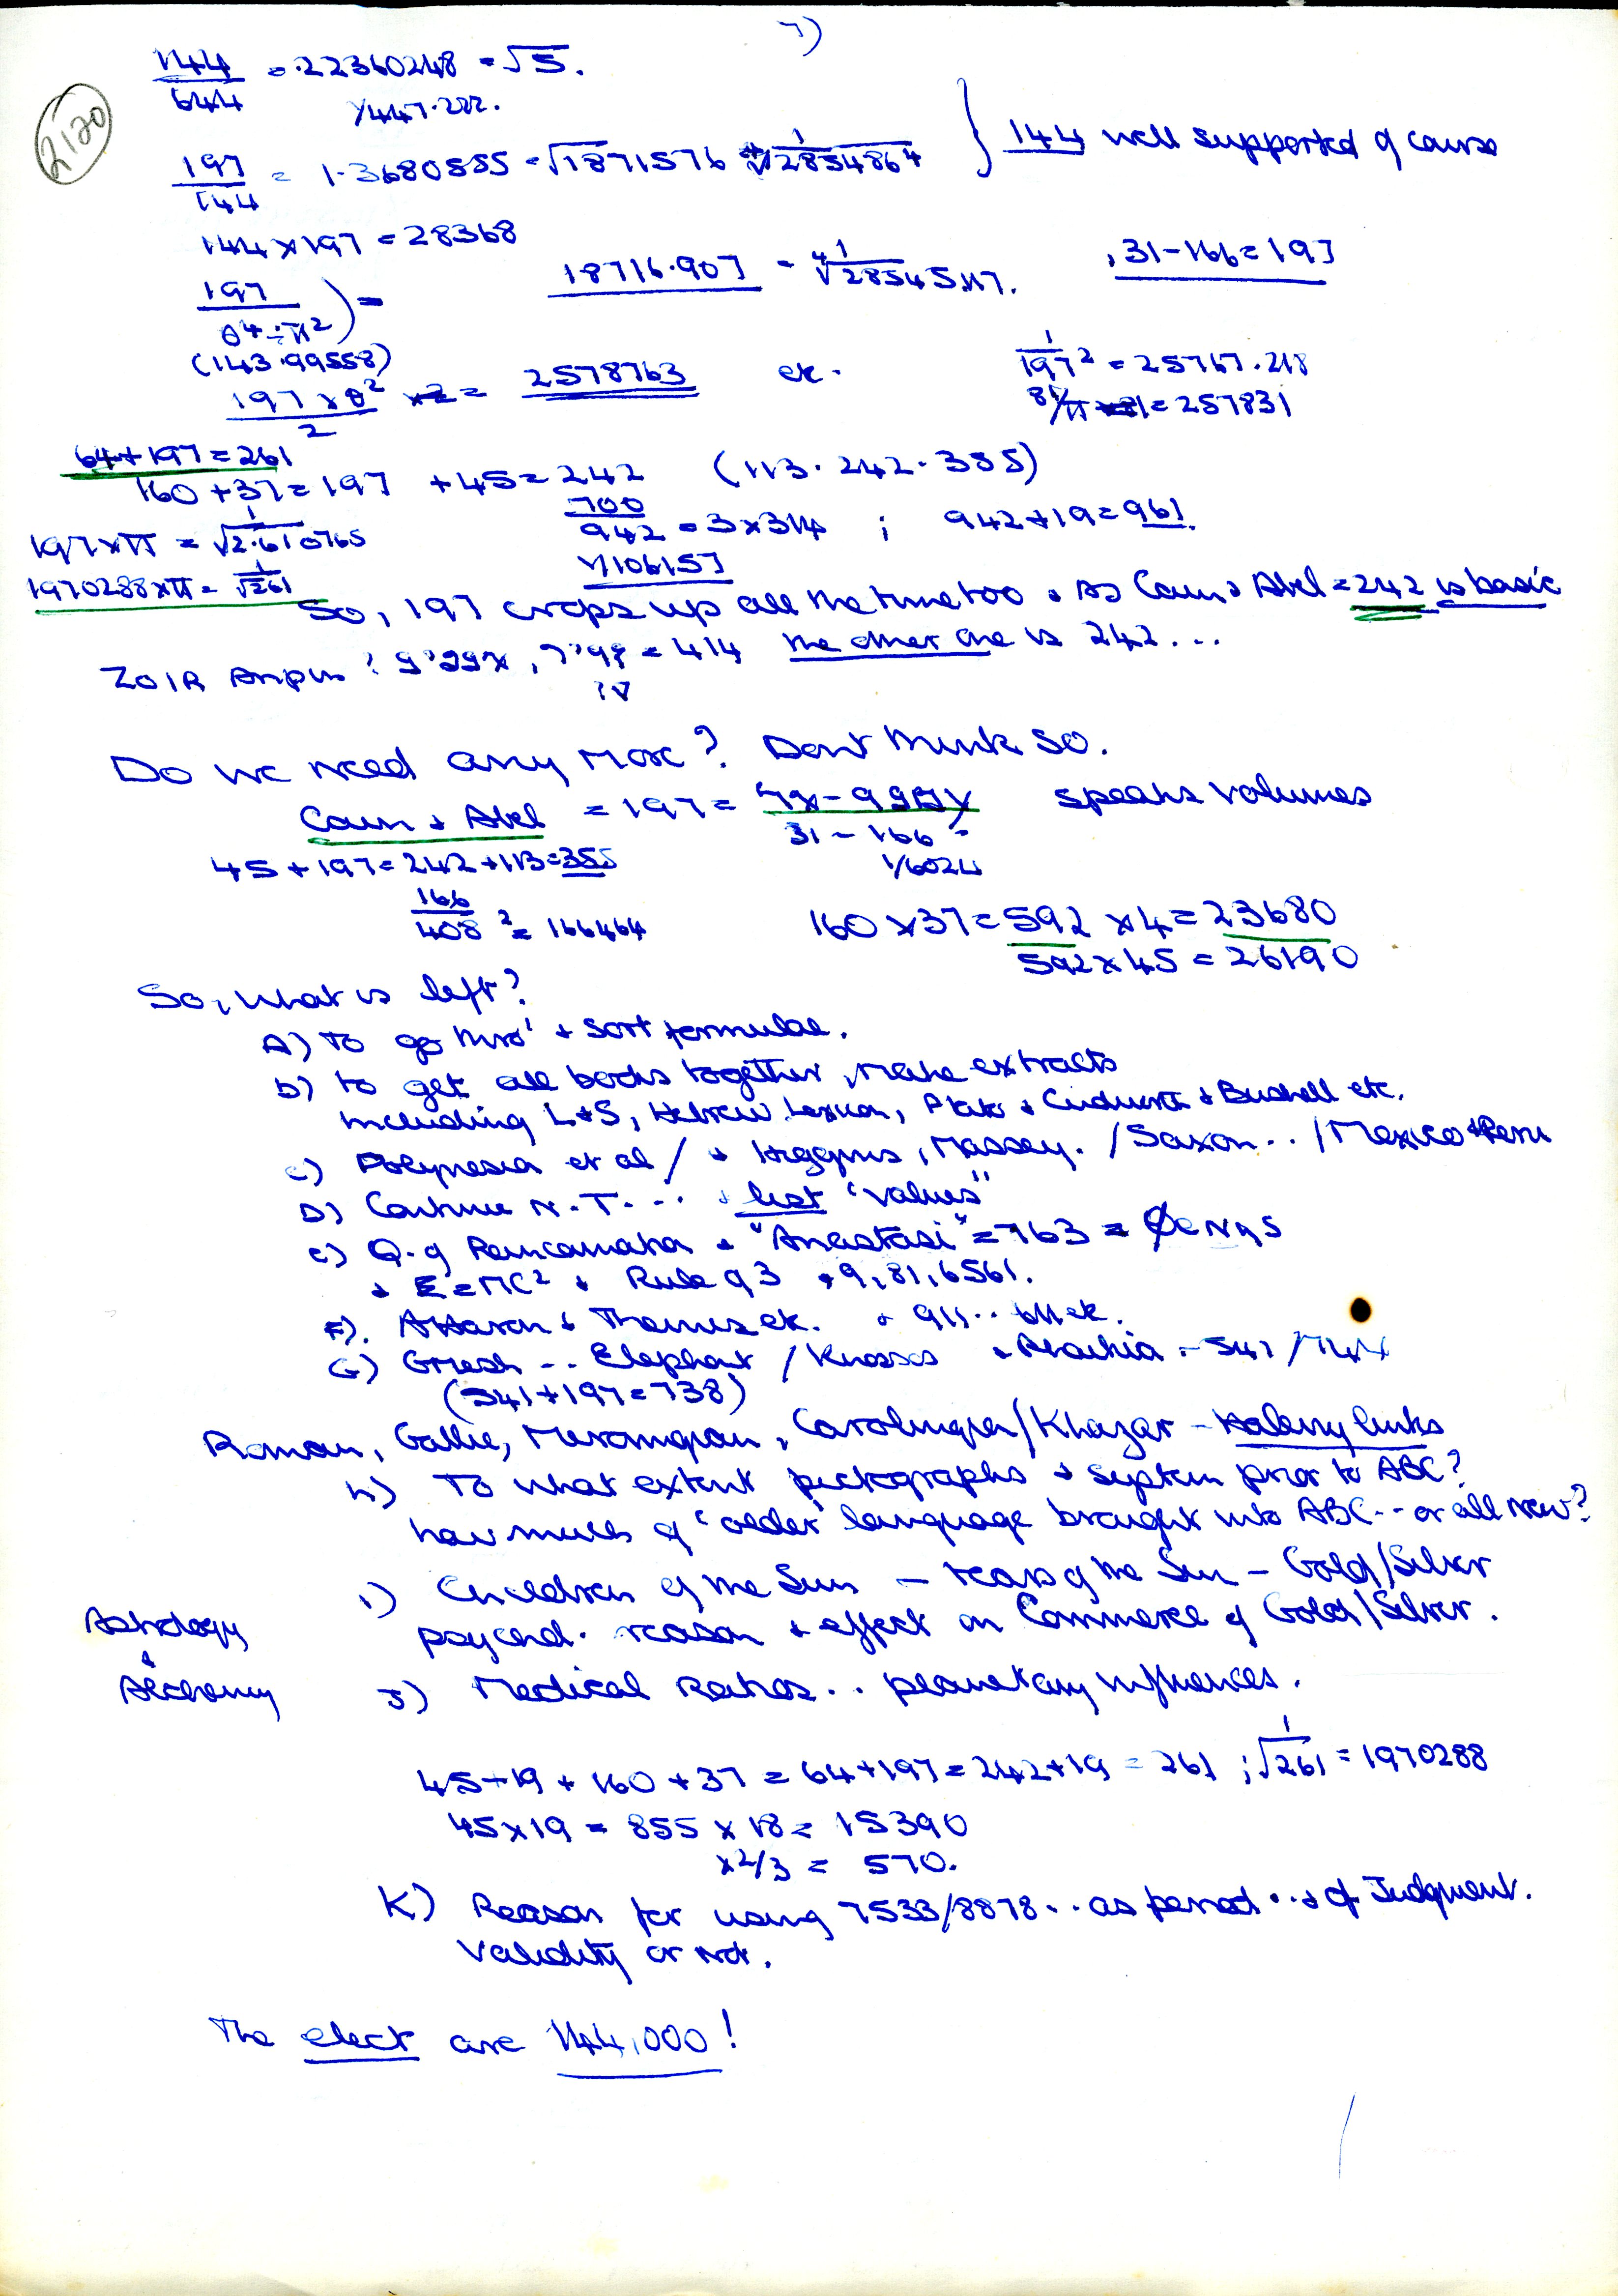 7)
2120
144/644 = .22360248 = √5.
1/447.222.
197/144 = 1.3680555 = √1871576 = ∜1/2854864 } 144 well supported of course
144 x 197 = 28368
197/(θ⁴÷π²) = 18716.907 = ∜1/28545.117. , 31-166 = 197
(143.99558)
197 x θ²/2 = 2578763 etc. 1/197² = 25767.218
81/π = 257831
64+197 = 261
160+37 = 197 +45 = 242 (113.242.355)
197 x π = √1/2.610765 700/942 = 3x314 ; 942+19 = 961
1/106157
1970288 x π = 1/√261
So, 197 crops up all the time too. As Cain & Abel = 242 is basic
= 414 the other one is 242...
Do we need any more? Dont think so.
Cain & Abel = 197 = speaks volumes
31 - 166 =
45+197 = 242+113 = 355
1/6024
166/408² = 166464 160 x 37 = 592 x 4 = 23680
592 x 45 = 26190
So, what is left?
A) To go thro' & sort formulae.
B) to get all books together, make extracts
including L+S, Hebrew Lexicon, Plato & & Bushell etc.
C) Polynesia et al / & Higgins, Massey. / Saxon .. / Mexico & Peru
D) Continue N.T. ... & list "values"
E) Q. of Reincarnation & "Anastasi" = 763 =
& E=MC² & Rule of 3 & 9, 81, 6561.
F). & Themis etc. & 911..
G) Greesh .. Elephant / Knossos & - 541 /
(541+197 = 738)
Roman, Gallic, Merovingian, Carolingian/Khazar - links
H) To what extent pictographs & system prior to ABC?
how much of 'older' language brought into ABC .. or all new?
I) Children of the Sun - tears of the Sun - Gold/Silver
psychol. reason & effect on Commerce of Gold/Silver.
Astrology
&
Alchemy
J) Medical Ratios .. planetary influences.
45+19+160+37 = 64+197 = 242+19 = 261 ; √1/261 = 1970288
45x19 = 855 x 18 = 15390
x 2/3 = 570.
K) Reason for using 7533/8878.. as period .. & of Judgment.
Validity or not.
The elect are 144,000!